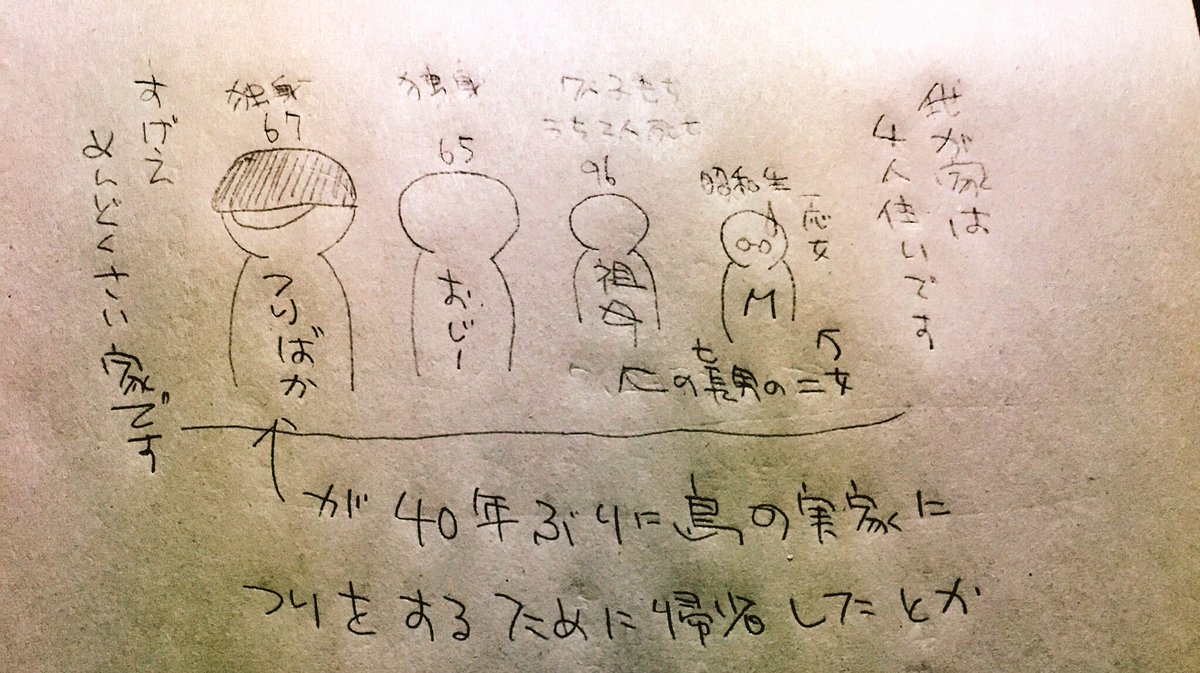 我が家は
4人住いです
昭和生
一応女
M
96
祖母
亡の長男の二女
独身
65
おじー
独身
67
つりばか
すげえ
めんどくさい家です
が40年ぶりに島の実家に
つりをするために帰省したとか